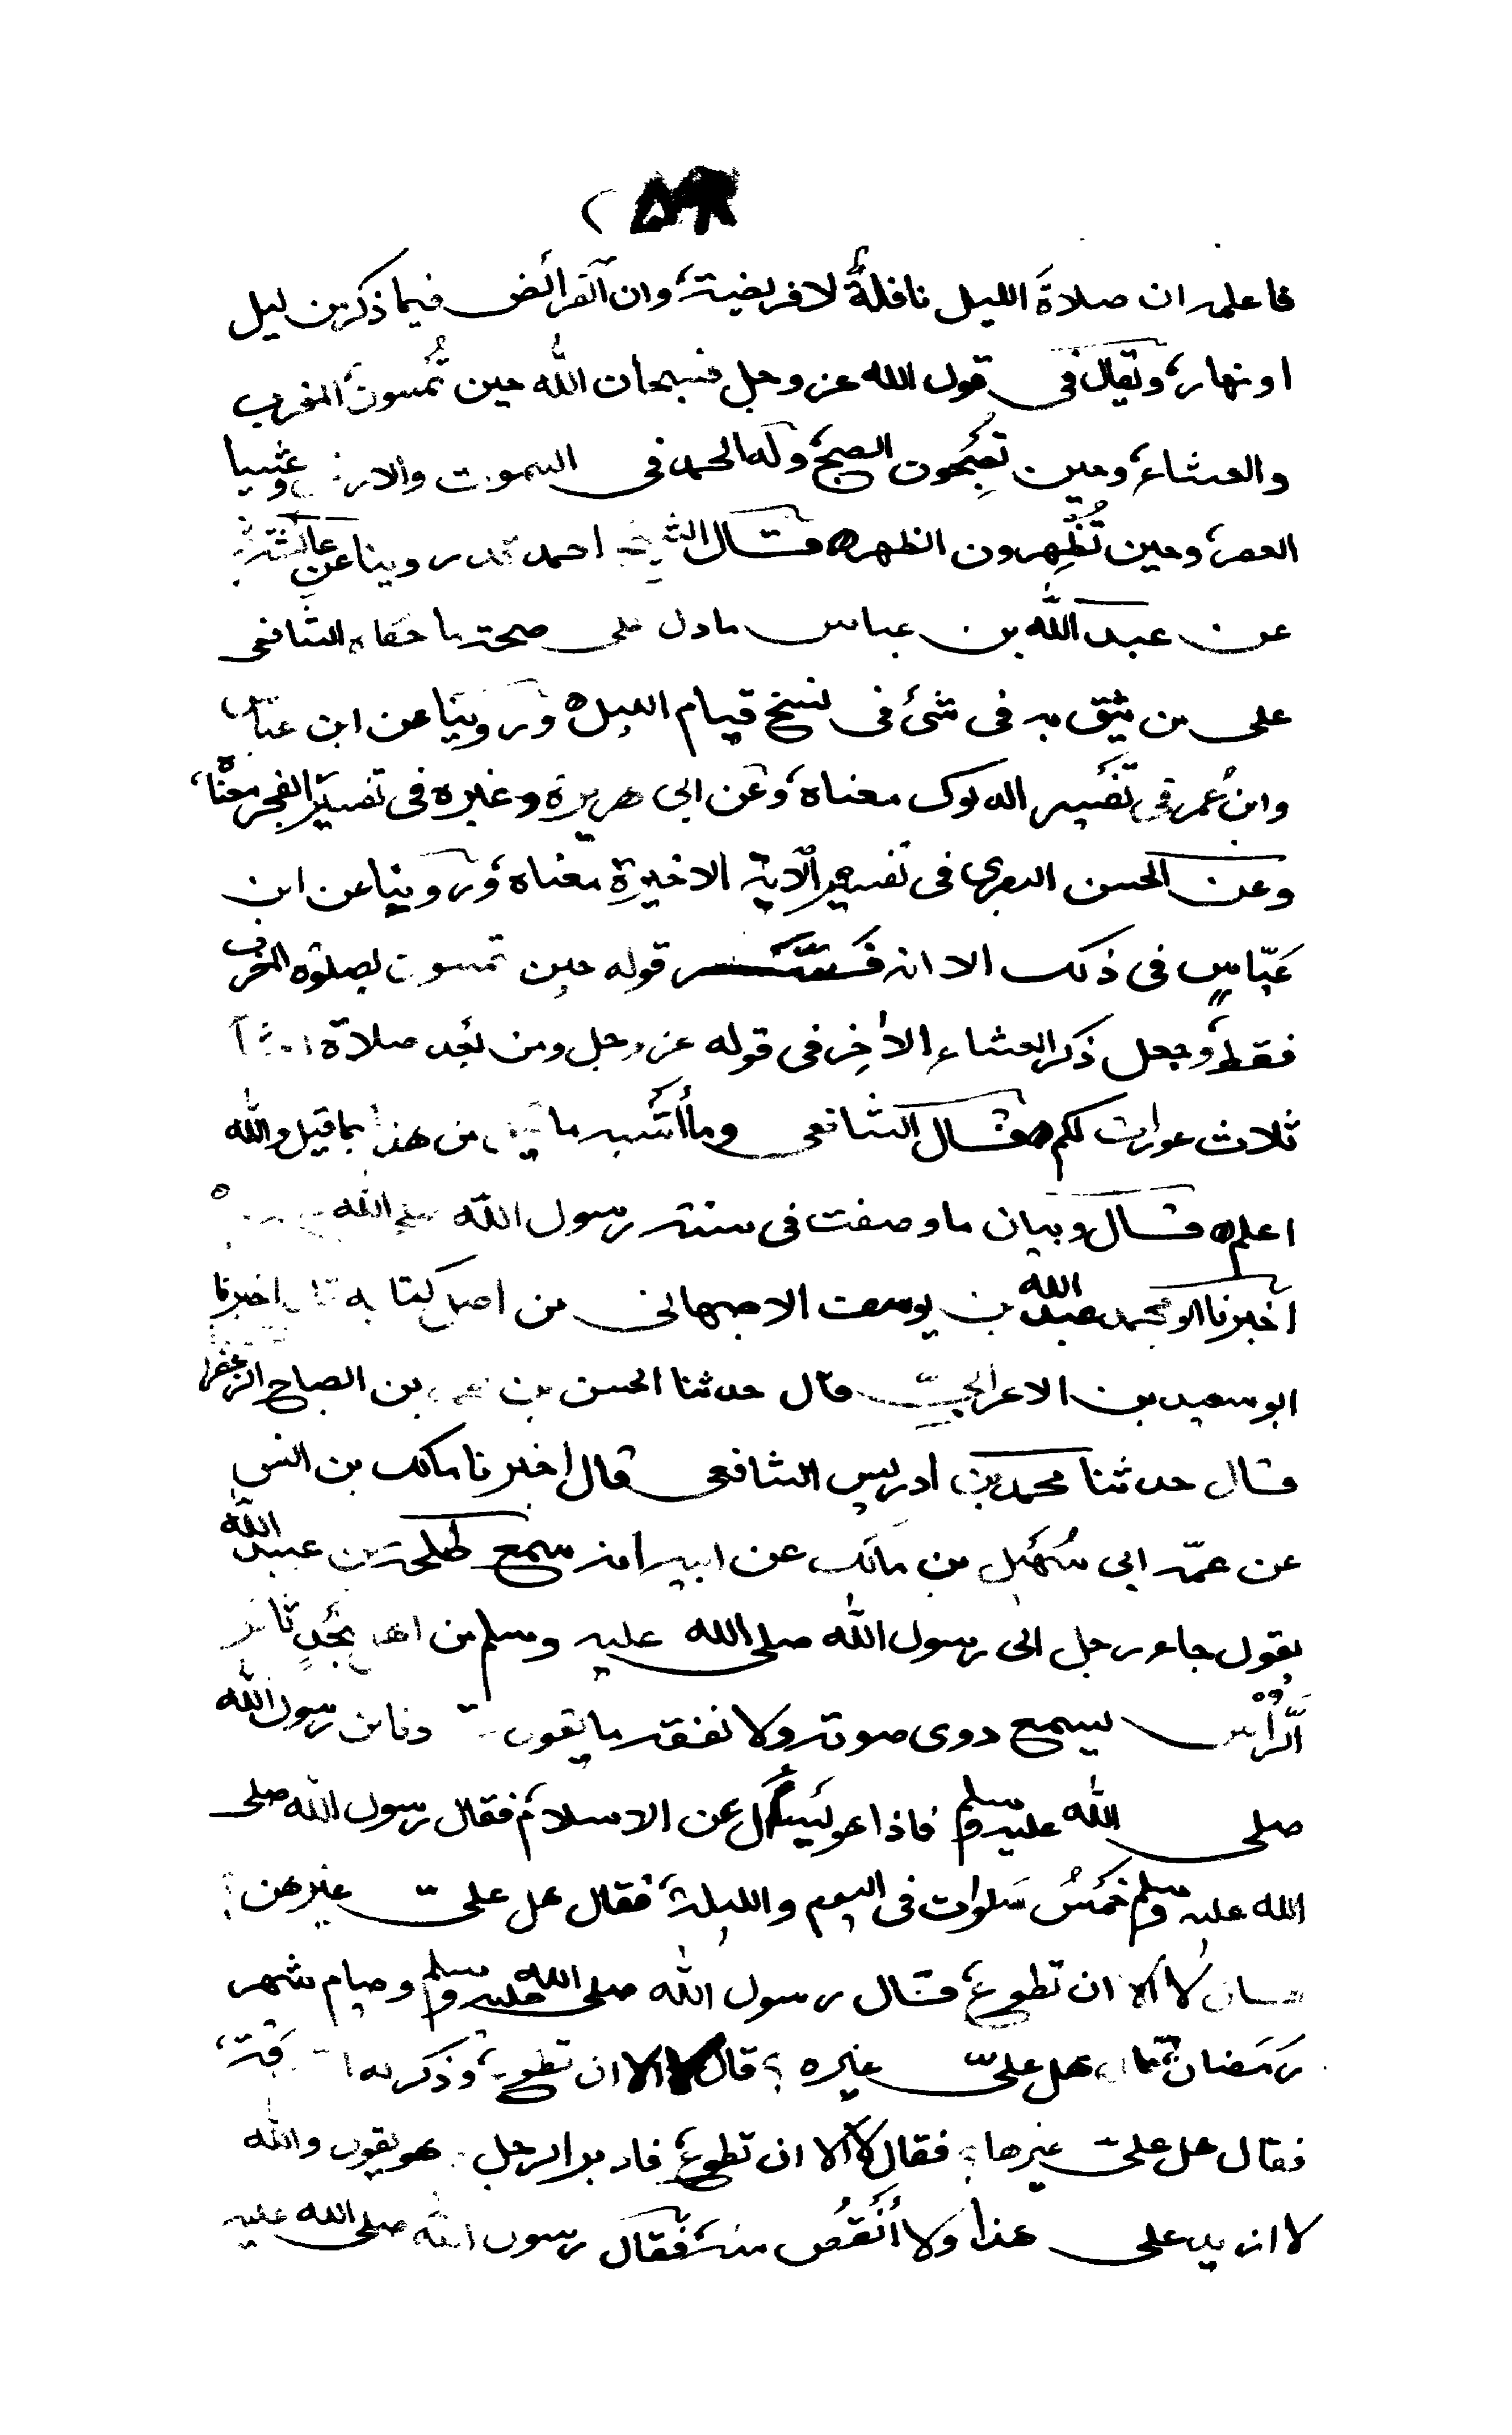 فاعلم ان صلاةَ الليل نافلةٌ لا فريضة، وان الفرائض فيما ذكر من ليل
او نهار، ويقال في قول الله عز وجل فسبحان الله حين تُمسون، المغرب
والعشاء، وحين تصبحون الصبح، وله الحمد في السموت والارض وعشيا
العصر، وحين تُظهِرون الظهر ه قال الشيخ احمد قد روينا عن عائشة
عن عبد الله بن عباس ما دل على صحة ما حكاه الشافعي
على من يثق به في شئ في نسخ قيام الليل ه وروينا عن ابن عباس
وابن عُمر في تفسير الدلوك معناه، وعن ابي هريرة وغيره في تفسير الفجر معناه،
وعن الحسن البصري في تفسير الآية الاخيرة معناه، وروينا عن ابن
عَبّاسٍ في ذلك الا انه فسّر قوله حين تمسون بصلوة المغرب
فقط، وجعل ذكر العشاء الآخِر في قوله عز وجل ومن بعد صلاة العشاء
ثلاث عورات لكم ه قال الشافعي وما أشبه ما من هذا بما قيل والله
اعلم ه قال وبيان ما وصفت في سنة رسول الله صلى الله
اخبرنا ابو محمد عبد الله بن يوسف الاصبهاني من اصل كتابه قال اخبرنا
ابو سعيد بن الاعرابيّ قال حدثنا الحسن بن محمد بن الصباح الزعفراني
قال حدثنا محمد بن ادريس الشافعي قال اخبرنا مالك بن انس
عن عمّه ابي سُهَيل بن مالك عن ابيه انه سمع طلحة بن عبيد الله
يقول جاء رجل الى رسول الله صلى الله عليه وسلم من اهل نجدٍ ثائر
الرأس يسمع دوى صوته ولا نفقه ما يقول دنا من رسول الله
صلى الله عليه وسلم فاذا هو يَسأل عن الاسلام، فقال رسول الله صلى
الله عليه وسلم خمَسُ صَلوات في اليوم والليلة، فقال هل عليّ غيرهن؟
قال لا الا ان تطوع، قال رسول الله صلى الله عليه وسلم وصيام شهر
رمضان، قال هل عليّ غيره؟ قال لا الا ان تطوع، وذكر له
فقال هل عليّ غيرها؟ فقال لا الا ان تطوع، فادبر الرجل هو يقول والله
لا ازيد على هذا ولا أَنْقُصُ منه، فقال رسول الله صلى الله عليه